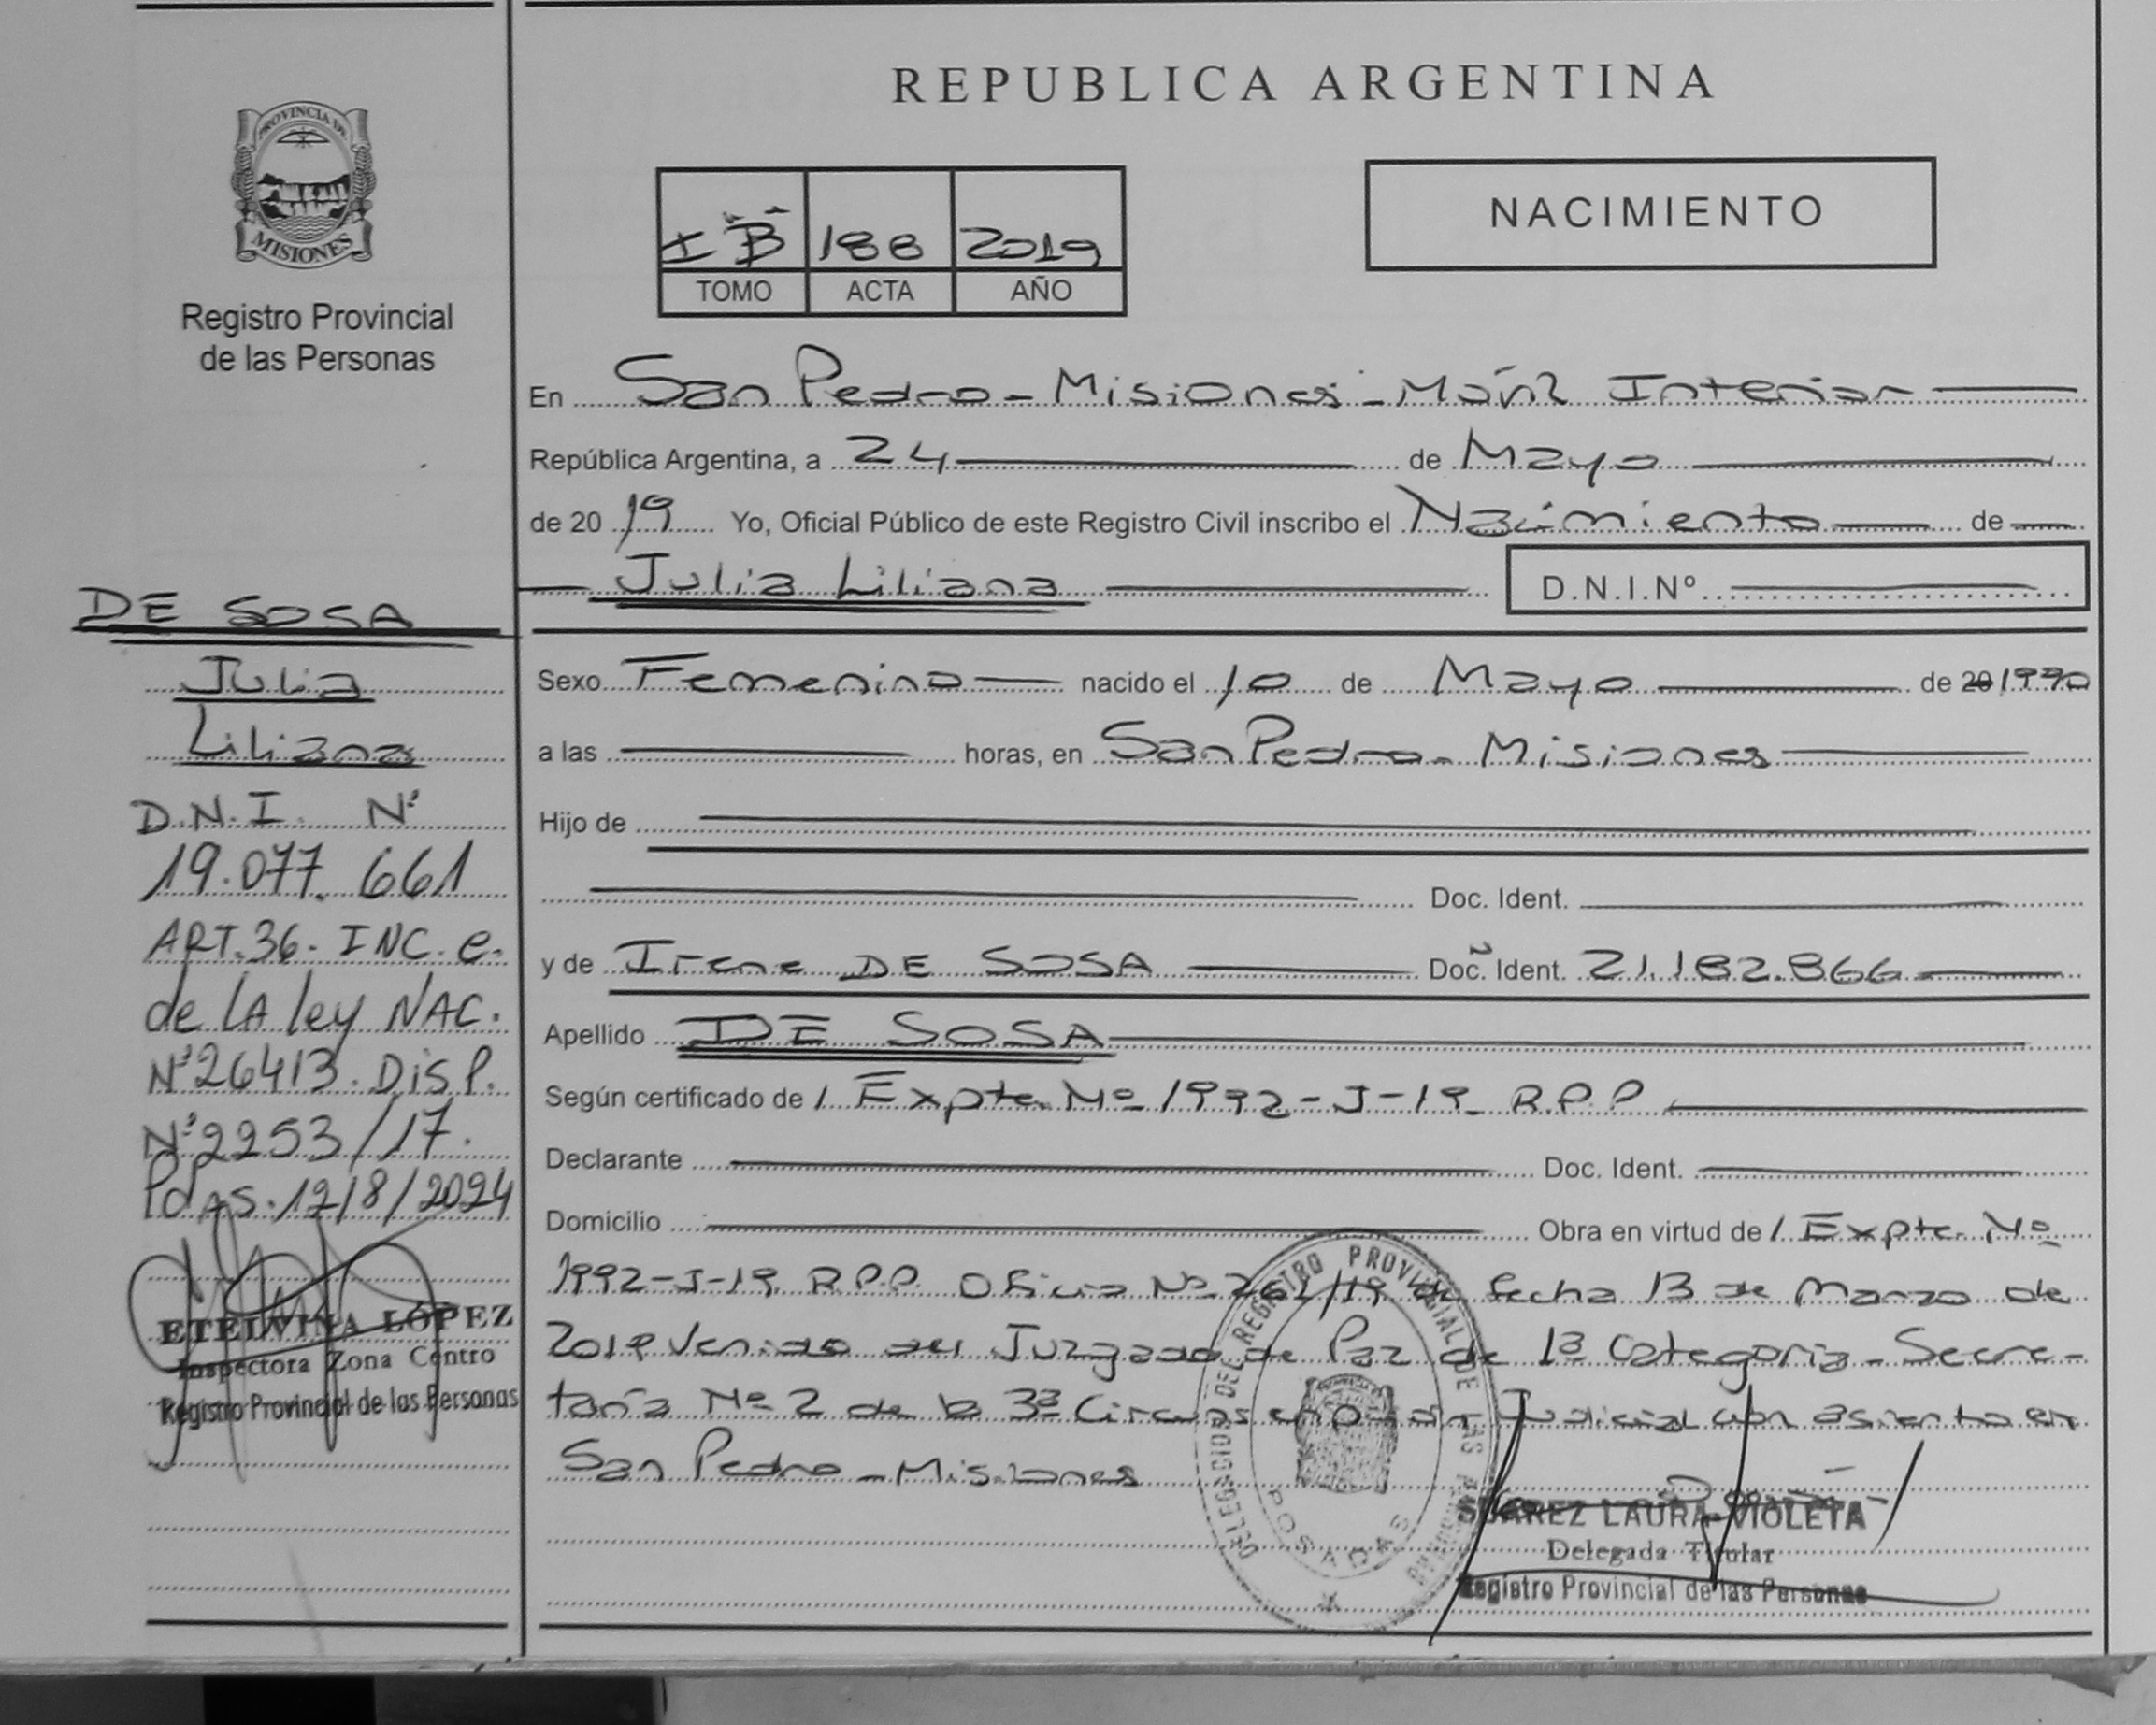 REPUBLICA ARGENTINA
PROVINCIA DE
MISIONES
Registro Provincial
de las Personas
I B 188 2019
TOMO ACTA AÑO
NACIMIENTO
En San Pedro - Misiones - Móvil Interior
República Argentina, a 24 de Mayo
de 2019 Yo, Oficial Público de este Registro Civil inscribo el Nacimiento de
Julia Liliana D.N.I.Nº
Sexo Femenino nacido el 10 de Mayo de 20 1990
a las horas, en San Pedro - Misiones
Hijo de
Doc. Ident.
y de Irene DE SOSA Doc. Ident. 21.182.866
Apellido DE SOSA
Según certificado de / Expte. Nº 1992-J-19 R.P.P
Declarante Doc. Ident.
Domicilio Obra en virtud de / Expte. Nº
1992-J-19 R.P.P. Oficio Nº 261/19 de fecha 13 de Marzo de
2019 venido del Juzgado de Paz de 1ª Categoria - Secre-
taría Nº 2 de la 3ª Circunscripción Judicial con asiento en
San Pedro - Misiones
DELEGACION DEL REGISTRO PROVINCIAL DE LAS PERSONAS
POSADAS
SUAREZ LAURA VIOLETA
Delegada Titular
Registro Provincial de las Personas
DE SOSA
Julia
Liliana
D.N.I. Nº
19.077.661
ART.36. INC. e.
de LA ley NAC.
Nº26413. DISP.
Nº2253/17.
PdAS. 12/8/2024
ETELVINA LÓPEZ
Inspectora Zona Centro
Registro Provincial de las Personas